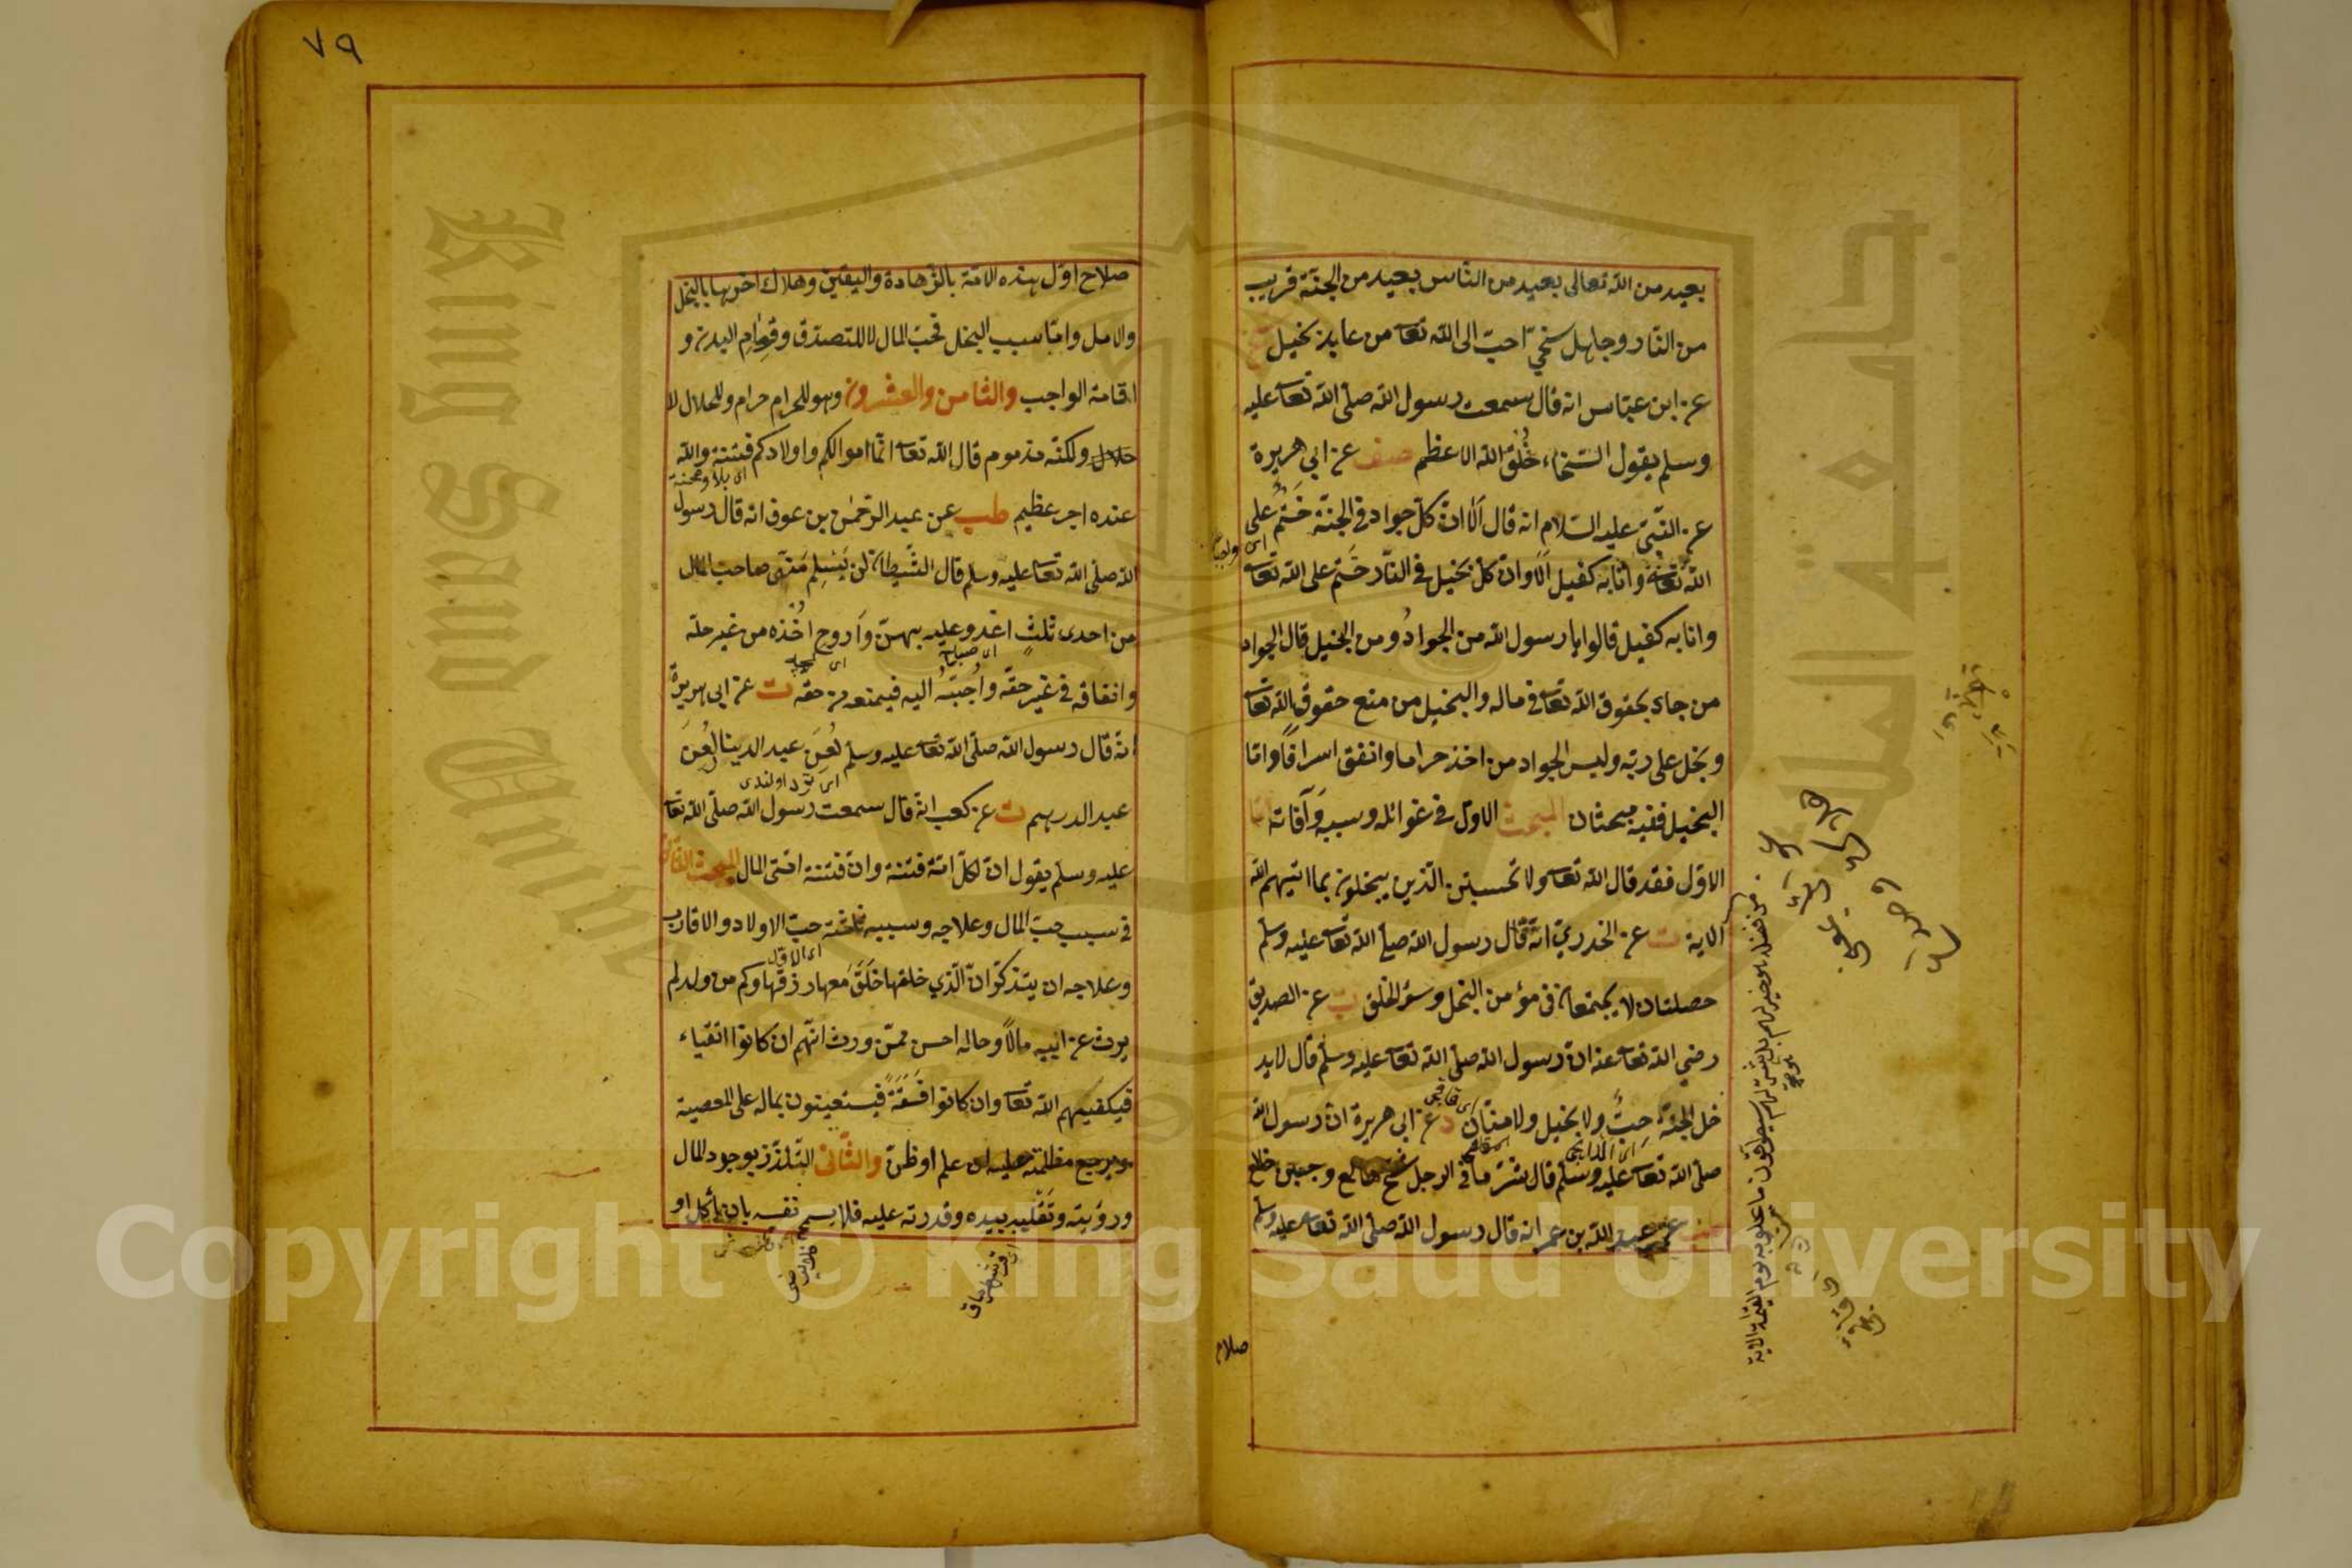 بعيد من الله تعالى بعيد من الناس بعيد من الجنة قريب
من النار وجاهل سخي احب الى الله تعا من عابد بخيل
عن ابن عباس انه قال سمعت رسول الله صلى الله تعا عليه
وسلم يقول السخاء خُلُق الله الاعظم صف عن ابي هريرة
عن النبي عليه السلام انه قال اَلا ان كل جواد في الجنة حَتْم على
الله تعا وانا به كفيل اَلا وان كل بخيل في النار حَتم على الله تعا
وانا به كفيل قالوا يا رسول الله من الجواد ومن البخيل قال الجواد
من جاد بحقوق الله تعا في ماله والبخيل من منع حقوق الله تعا
وبخل على ربه وليس الجواد من اخذ حراما وانفق اسرافا واما
البخيل ففيه مبحثان المبحث الاول في غوائله وسببه وآفاته اما
الاول فقد قال الله تعا ولا تحسبن الذين يبخلون بما اتيهم الله
الاية ت عن الخدري انه قال رسول الله صلى الله تعا عليه وسلم
خصلتان لا يجتمعان في مؤمن البخل وسوء الخلق ت عن الصديق
رضي الله تعا عنه ان رسول الله صلى الله تعا عليه وسلم قال لا يد
خل الجنة خِبٌّ ولا بخيل ولا منان د عن ابي هريرة ان رسول الله
صلى الله تعا عليه وسلم قال شر ما في الرجل شح هالع وجبن خالع
عن عبد الله بن عمر انه قال رسول الله صلى الله تعا عليه وسلم
من فضله هو خيرا لهم بل هو شر لهم سيطوقون ما بخلوا به يوم القيمة الاية
صلاح
٧٩
صلاح اول هذه الامة بالزهادة واليقين وهلاك اخرها بالبخل
والامل واما سبب البخل فحب المال لا للتصدق وقوام البدن و
اقامة الواجب والثامن والعشرون وهو للحرام حرام وللحلال لا
حلال ولكنه مذموم قال الله تعا انما اموالكم واولادكم فتنة والله
اى بلاء ومحنة
عنده اجر عظيم طب عن عبد الرحمن بن عوف انه قال رسول
الله صلى الله تعا عليه وسلم قال الشيطان لن يَسْلم منى صاحب المال
من احدى ثلث اغدو عليه بهن واَروح اخذه من غير حله
اى صباح
وانفاقه في غير حقه واُحبّبُه اليه فيمنعه من حقه ت عن ابي هريرة
انه قال رسول الله صلى الله تعا عليه وسلم لُعِنَ عبد الدينار لُعِنَ
عبد الدرهم ت عن كعب انه قال سمعت رسول الله صلى الله تعا
عليه وسلم يقول ان لكل امة فتنة وان فتنة امتى المال المبحث الثاني
في سبب حب المال وعلاجه وسببه ثلثة حب الاولاد والاقارب
اى الاول
وعلاجه ان يتذكر ان الذي خلقها خَلَقَ معها رزقها وكم من ولد لم
يرث عن ابيه مالا وحاله احسن ممن ورث انهم ان كانوا اتقياء
فيكفيهم الله تعا وان كانوا فَسَقَةً فيستعينون بماله على المعصية
ويرجع مظلمته عليه ان علم او ظن والثاني التلذذ بوجود المال
ورؤيته وتقليبه بيده وقدرته عليه فلا يسمح نفسه بان ياكل او